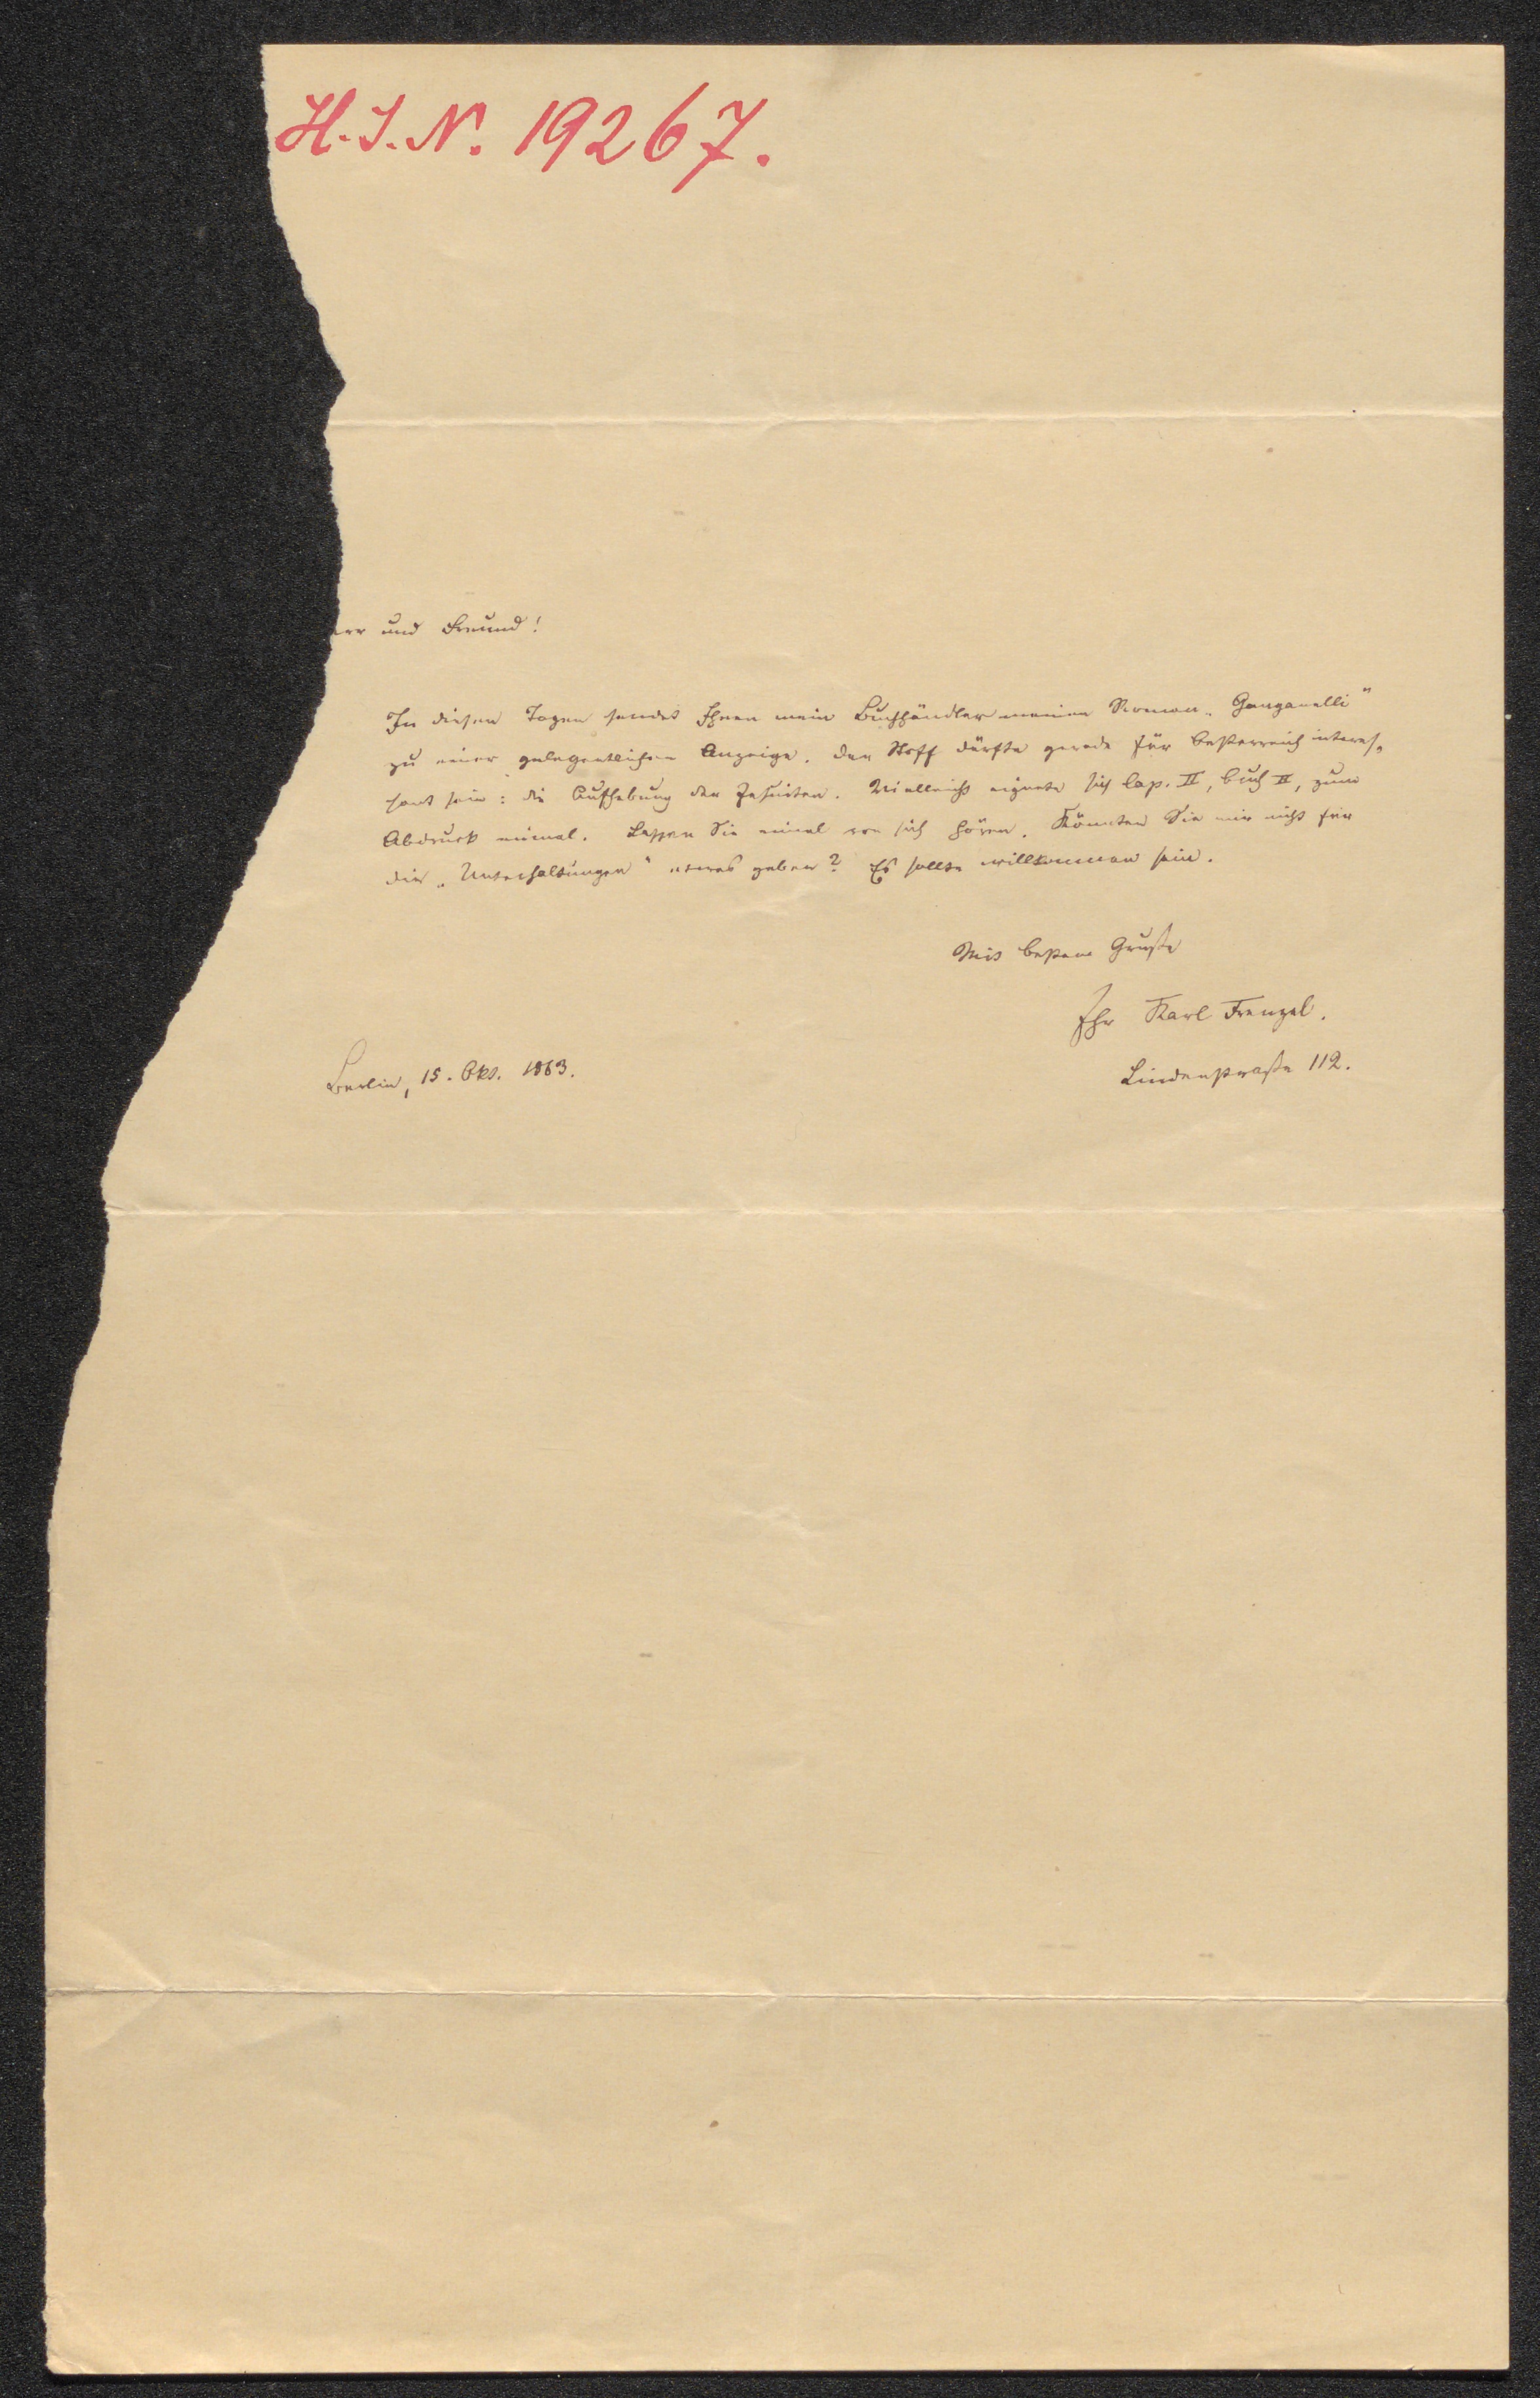 H.I.N. 19267.
err und Freund!
In diesen Tagen sendet Ihnen mein Buchhändler meinen Roman „Ganganelli"
zu einer gelegentlichen Anzeige. Der Stoff dürfte gerade für Oesterreich interes„
sant sein: die Aufhebung der Jesuiten. Vielleicht eignete sich Cap. II, Buch II, zum
Abdruck einmal. Lassen Sie einmal von sich hören. Könnten Sie mir nicht für
die „Unterhaltungen" etwas geben? Es sollte willkommen sein.
Mit bestem Gruße
Ihr Karl Frenzel.
Berlin, 15. Okt. 1863.
Lindenstraße 112.